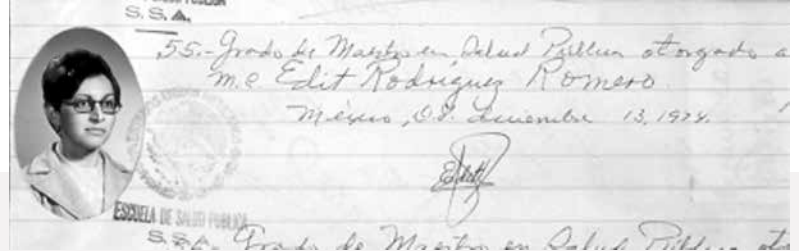 S. S. A.
55.- Grado de Maestro en Salud Pública otorgado a
M.C Edit Rodríguez Romero.
México, D.F. diciembre 13, 1974.
Edith
ESCUELA DE SALUD PUBLICA
S.S.A.
Grado de Maestro en Salud Pública